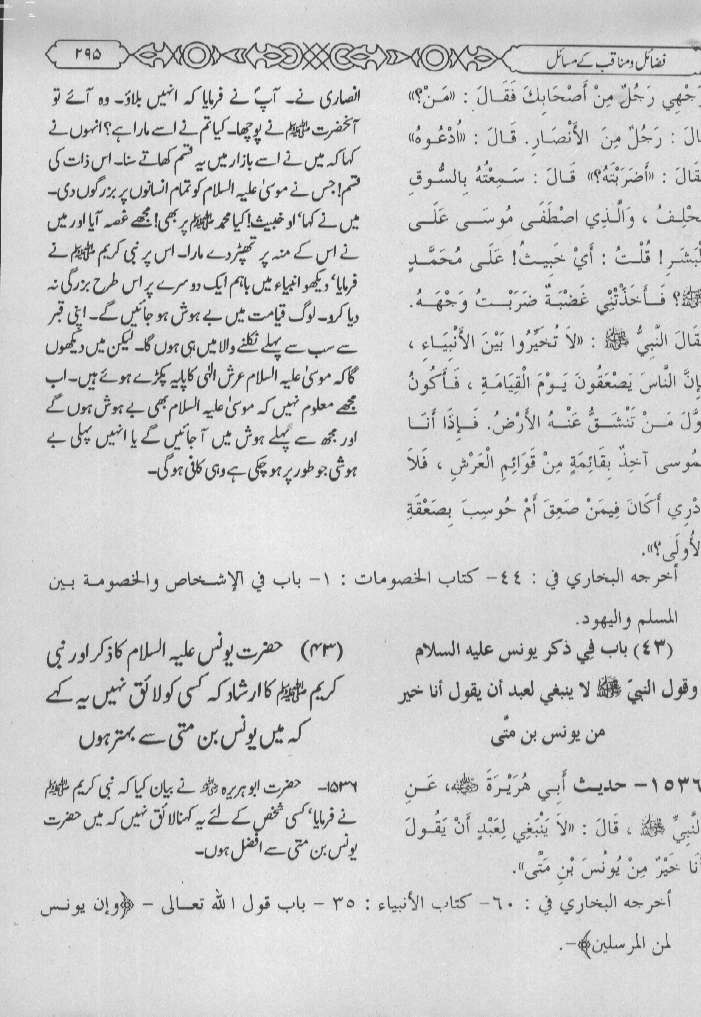 فضائل ومناقب کے مسائل
۲۹۵
وَجْهِي رَجُلٌ مِنْ أَصْحَابِكَ فَقَالَ : «مَنْ؟»
قَالَ : رَجُلٌ مِنَ الأَنْصَارِ. قَالَ : «ادْعُوهُ»
فَقَالَ : «أَضَرَبْتَهُ؟» قَالَ : سَمِعْتُهُ بِالسُّوقِ
يَحْلِفُ ، وَالَّذِي اصْطَفَى مُوسَى عَلَى
الْبَشَرِ! قُلْتُ : أَيْ خَبِيثُ! عَلَى مُحَمَّدٍ
ﷺ؟ فَأَخَذَتْنِي غَضْبَةٌ ضَرَبْتُ وَجْهَهُ.
فَقَالَ النَّبِيُّ ﷺ : «لاَ تُخَيِّرُوا بَيْنَ الأَنْبِيَاءِ ،
فَإِنَّ النَّاسَ يَصْعَقُونَ يَوْمَ الْقِيَامَةِ ، فَأَكُونُ
أَوَّلَ مَنْ تَنْشَقُّ عَنْهُ الأَرْضُ. فَإِذَا أَنَا
بِمُوسى آخِذٌ بِقَائِمَةٍ مِنْ قَوَائِمِ الْعَرْشِ ، فَلاَ
أَدْرِي أَكَانَ فِيمَنْ صَعِقَ أَمْ حُوسِبَ بِصَعْقَةِ
الأُولَى؟».
انصاری نے۔ آپؐ نے فرمایا کہ انہیں بلاؤ۔ وہ آئے تو
آنحضرت ﷺ نے پوچھا۔ کیا تم نے اسے مارا ہے؟ انہوں نے
کہا کہ میں نے اسے بازار میں یہ قسم کھاتے سنا۔ اس ذات کی
قسم! جس نے موسیٰ علیہ السلام کو تمام انسانوں پر بزرگوں دی۔
میں نے کہا' او خبیث! کیا محمد ﷺ پر بھی! مجھے غصہ آیا اور میں
نے اس کے منہ پر تھپڑ دے مارا۔ اس پر نبی کریم ﷺ نے
فرمایا' دیکھو انبیاء میں باہم ایک دوسرے پر اس طرح بزرگی نہ
دیا کرو۔ لوگ قیامت میں بے ہوش ہو جائیں گے۔ اپنی قبر
سے سب سے پہلے نکلنے والا میں ہی ہوں گا۔ لیکن میں دیکھوں
گا کہ موسیٰ علیہ السلام عرش الٰہی کا پایہ پکڑے ہوئے ہیں۔ اب
مجھے معلوم نہیں کہ موسیٰ علیہ السلام بھی بے ہوش ہوں گے
اور مجھ سے پہلے ہوش میں آ جائیں گے یا انہیں پہلی بے
ہوشی جو طور پر ہو چکی ہے وہی کافی ہو گی۔
أخرجه البخاري في : ٤٤- كتاب الخصومات : ١- باب في الإشخاص والخصومة بين
المسلم واليهود.
(٤٣) باب فِي ذكر يونس عليه السلام
وقول النبيّ ﷺ لا ينبغي لعبد أن يقول أنا خير
من يونس بن متَّى
(۴۳) حضرت یونس علیہ السلام کا ذکر اور نبی
کریم ﷺ کا ارشاد کہ کسی کو لائق نہیں یہ کہے
کہ میں یونس بن متی سے بہتر ہوں
١٥٣٦- حديث أَبِي هُرَيْرَةَ رضي الله عنه، عَنِ
النَّبِيِّ ﷺ ، قَالَ : «لاَ يَنْبَغِي لِعَبْدٍ أَنْ يَقُولَ
أَنَا خَيْرٌ مِنْ يُونُسَ بْنِ مَتَّى».
۱۵۳۶۔ حضرت ابو ہریرہ رضی اللہ عنہ نے بیان کیا کہ نبی کریم ﷺ
نے فرمایا' کسی شخص کے لئے یہ کہنا لائق نہیں کہ میں حضرت
یونس بن متی سے افضل ہوں۔
أخرجه البخاري في : ٦٠- كتاب الأنبياء : ٣٥ - باب قول الله تعالى - ﴿وإن يونس
لمن المرسلين﴾-.